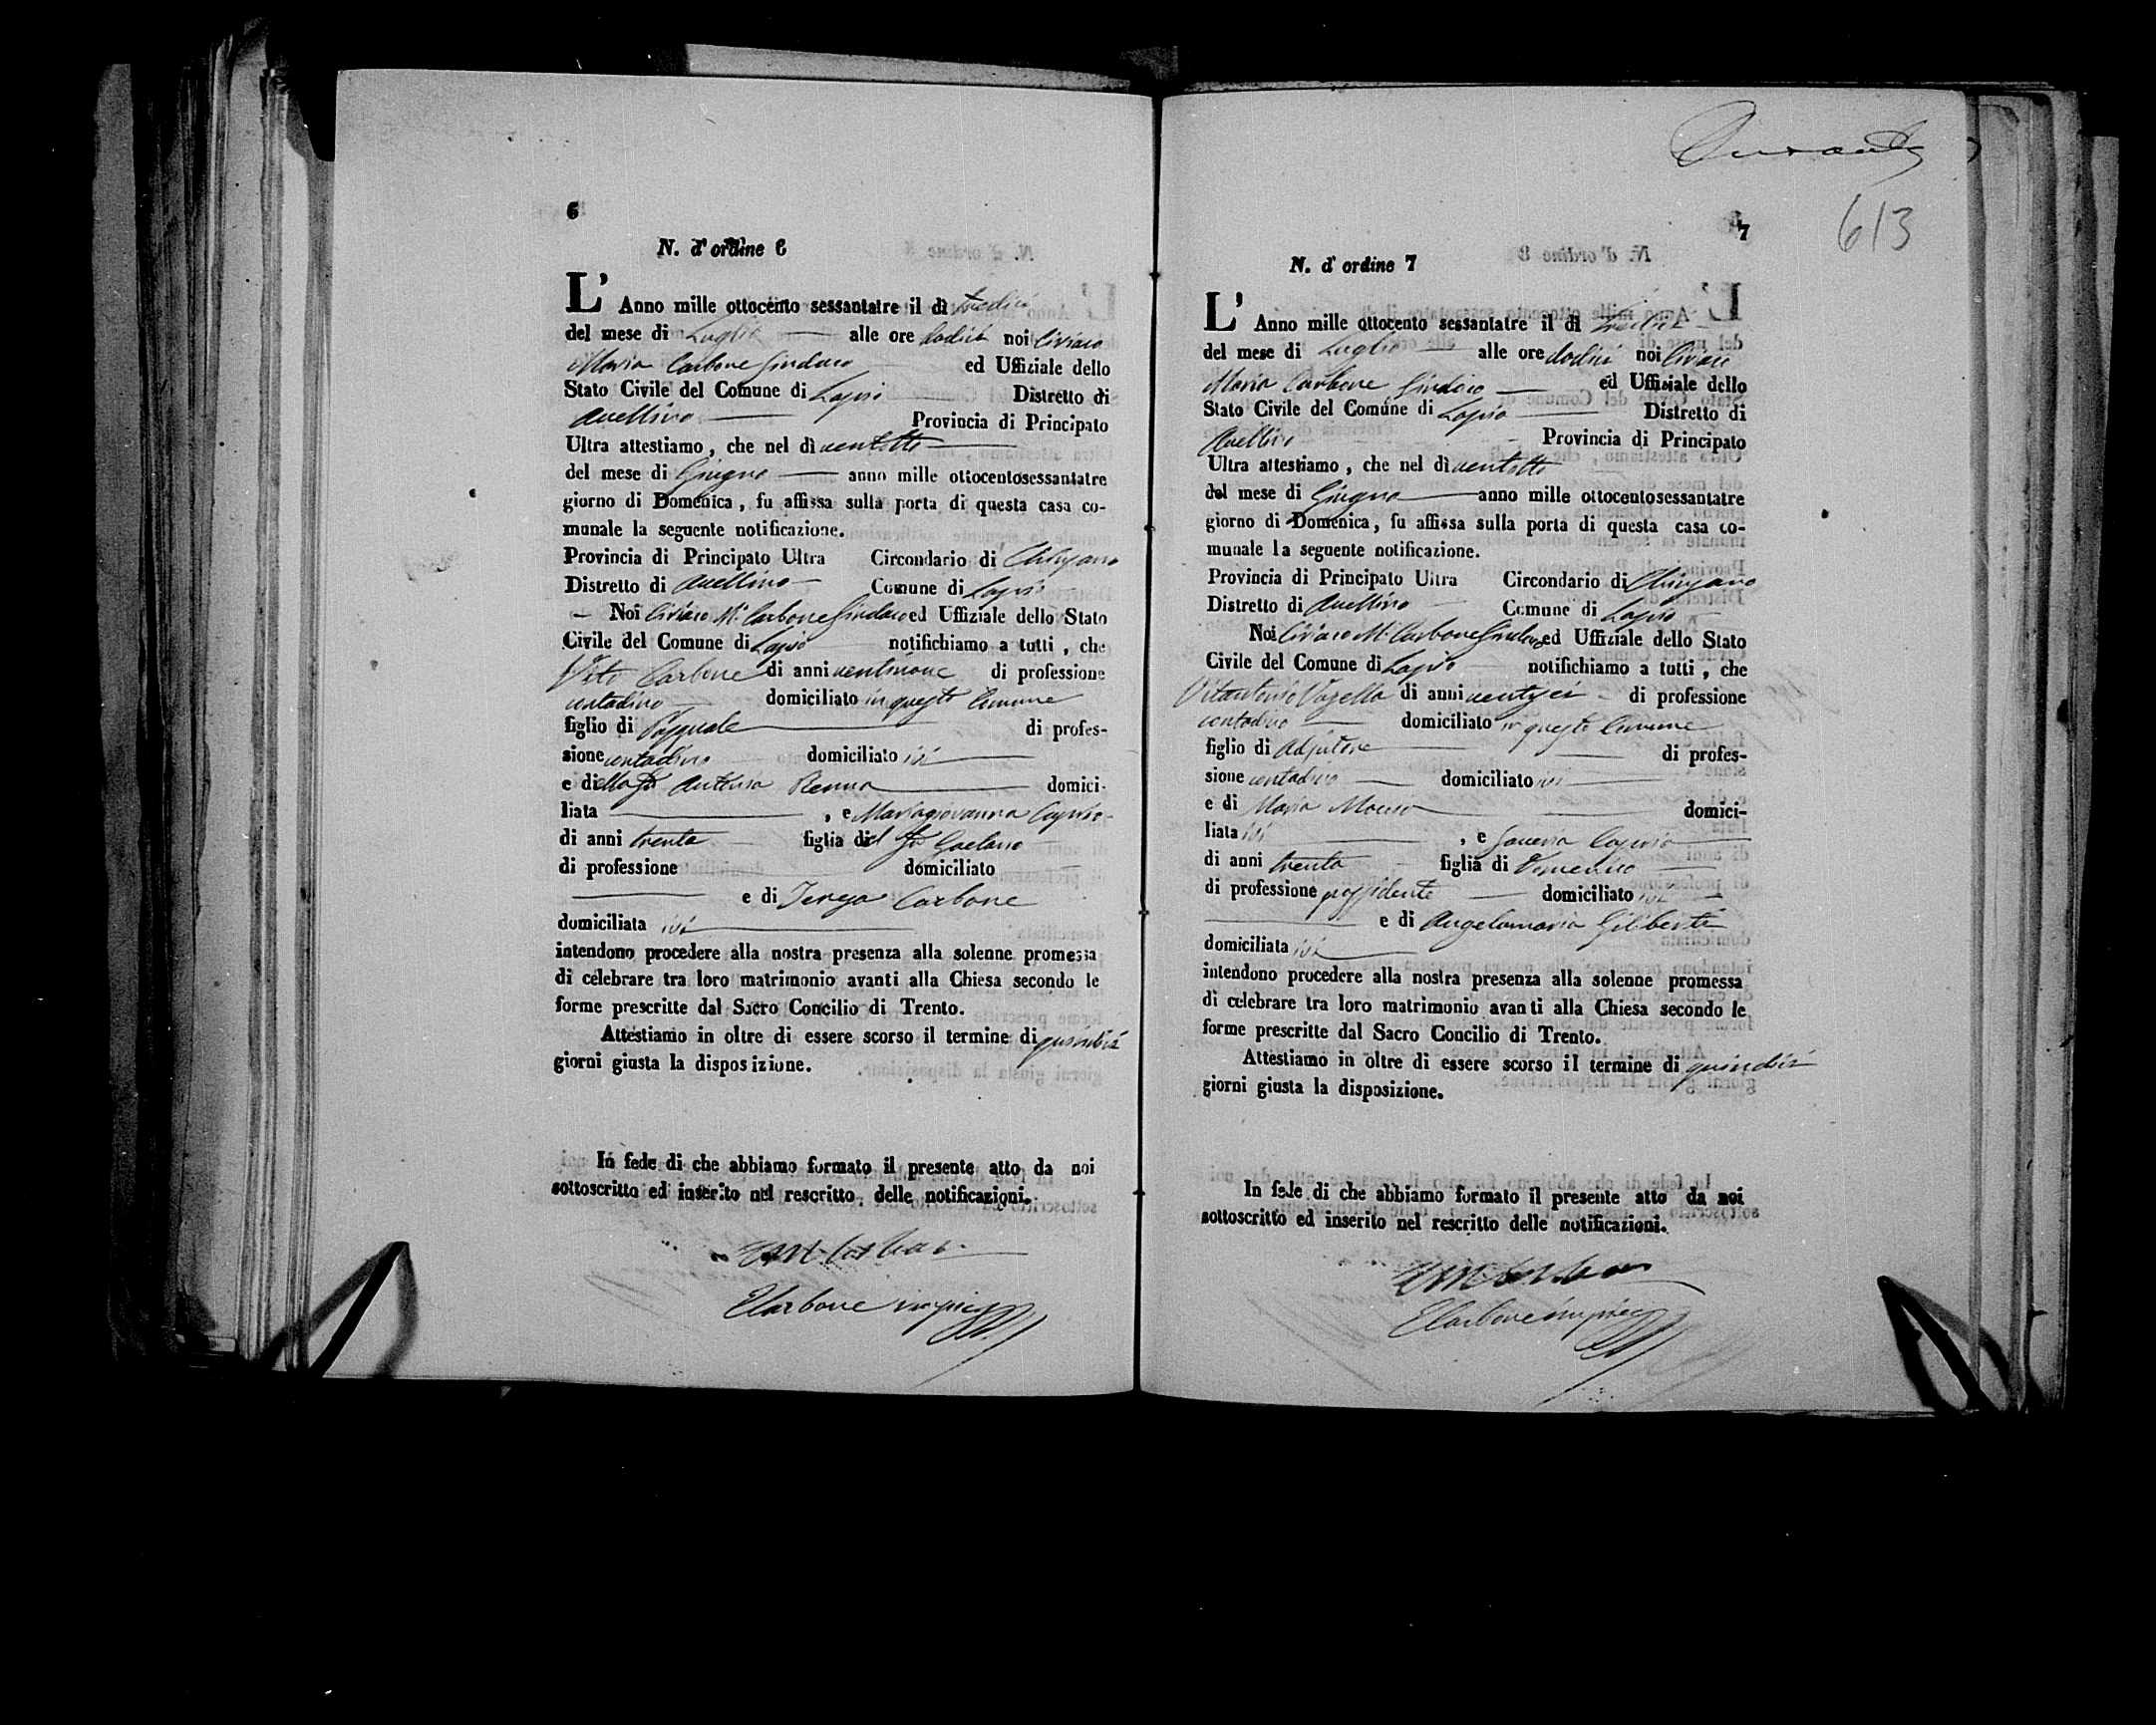 6
N. d'ordine 6
L' Anno mille ottocento sessantatre il dì tredici
del mese di Luglio alle ore dodici noi Ciriaco
Maria Carbone Sindaco ed Uffiziale dello
Stato Civile del Comune di Lapio Distretto di
Avellino Provincia di Principato
Ultra attestiamo, che nel dì ventotto
del mese di Giugno anno mille ottocentosessantatre
giorno di Domenica, fu affissa sulla porta di questa casa co-
munale la seguente notificazione.
Provincia di Principato Ultra Circondario di Chiusano
Distretto di Avellino Comune di Lapio
Noi Ciriaco M.ª Carbone Sindaco ed Uffiziale dello Stato
Civile del Comune di Lapio notifichiamo a tutti, che
Vito Carbone di anni ventinove di professione
contadino domiciliato in questo Comune
figlio di Pasquale di profes-
sione contadino domiciliato ivi
e di della fu Antonia Renna domici-
liata , e Mariagiovanna Caprio
di anni trenta figlia del fu Gaetano
di professione domiciliato
e di Teresa Carbone
domiciliata ivi
intendono procedere alla nostra presenza alla solenne promessa
di celebrare tra loro matrimonio avanti alla Chiesa secondo le
forme prescritte dal Sacro Concilio di Trento.
Attestiamo in oltre di essere scorso il termine di quindici
giorni giusta la disposizione.
In fede di che abbiamo formato il presente atto da noi
sottoscritto ed inserito nel rescritto delle notificazioni.
CM Carbone
Carbone
613
7
N. d'ordine 7
L' Anno mille ottocento sessantatre il dì tredici
del mese di Luglio alle ore dodici noi Ciriaco
Maria Carbone Sindaco ed Uffiziale dello
Stato Civile del Comune di Lapio Distretto di
Avellino Provincia di Principato
Ultra attestiamo, che nel dì ventotto
del mese di Giugno anno mille ottocentosessantatre
giorno di Domenica, fu affissa sulla porta di questa casa co-
munale la seguente notificazione.
Provincia di Principato Ultra Circondario di Chiusano
Distretto di Avellino Comune di Lapio
Noi Ciriaco M.ª Carbone Sindaco ed Uffiziale dello Stato
Civile del Comune di Lapio notifichiamo a tutti, che
Vitantonio di anni ventisei di professione
contadino domiciliato in questo Comune
figlio di Adjutore di profes-
sione contadino domiciliato ivi
e di Maria domici-
liata ivi , e Saveria Caprio
di anni trenta figlia di Domenico
di professione possidente domiciliato ivi
e di Angelamaria Giliberti
domiciliata ivi
intendono procedere alla nostra presenza alla solenne promessa
di celebrare tra loro matrimonio avanti alla Chiesa secondo le
forme prescritte dal Sacro Concilio di Trento.
Attestiamo in oltre di essere scorso il termine di quindici
giorni giusta la disposizione.
In fede di che abbiamo formato il presente atto da noi
sottoscritto ed inserito nel rescritto delle notificazioni.
CM Carbone
Carbone